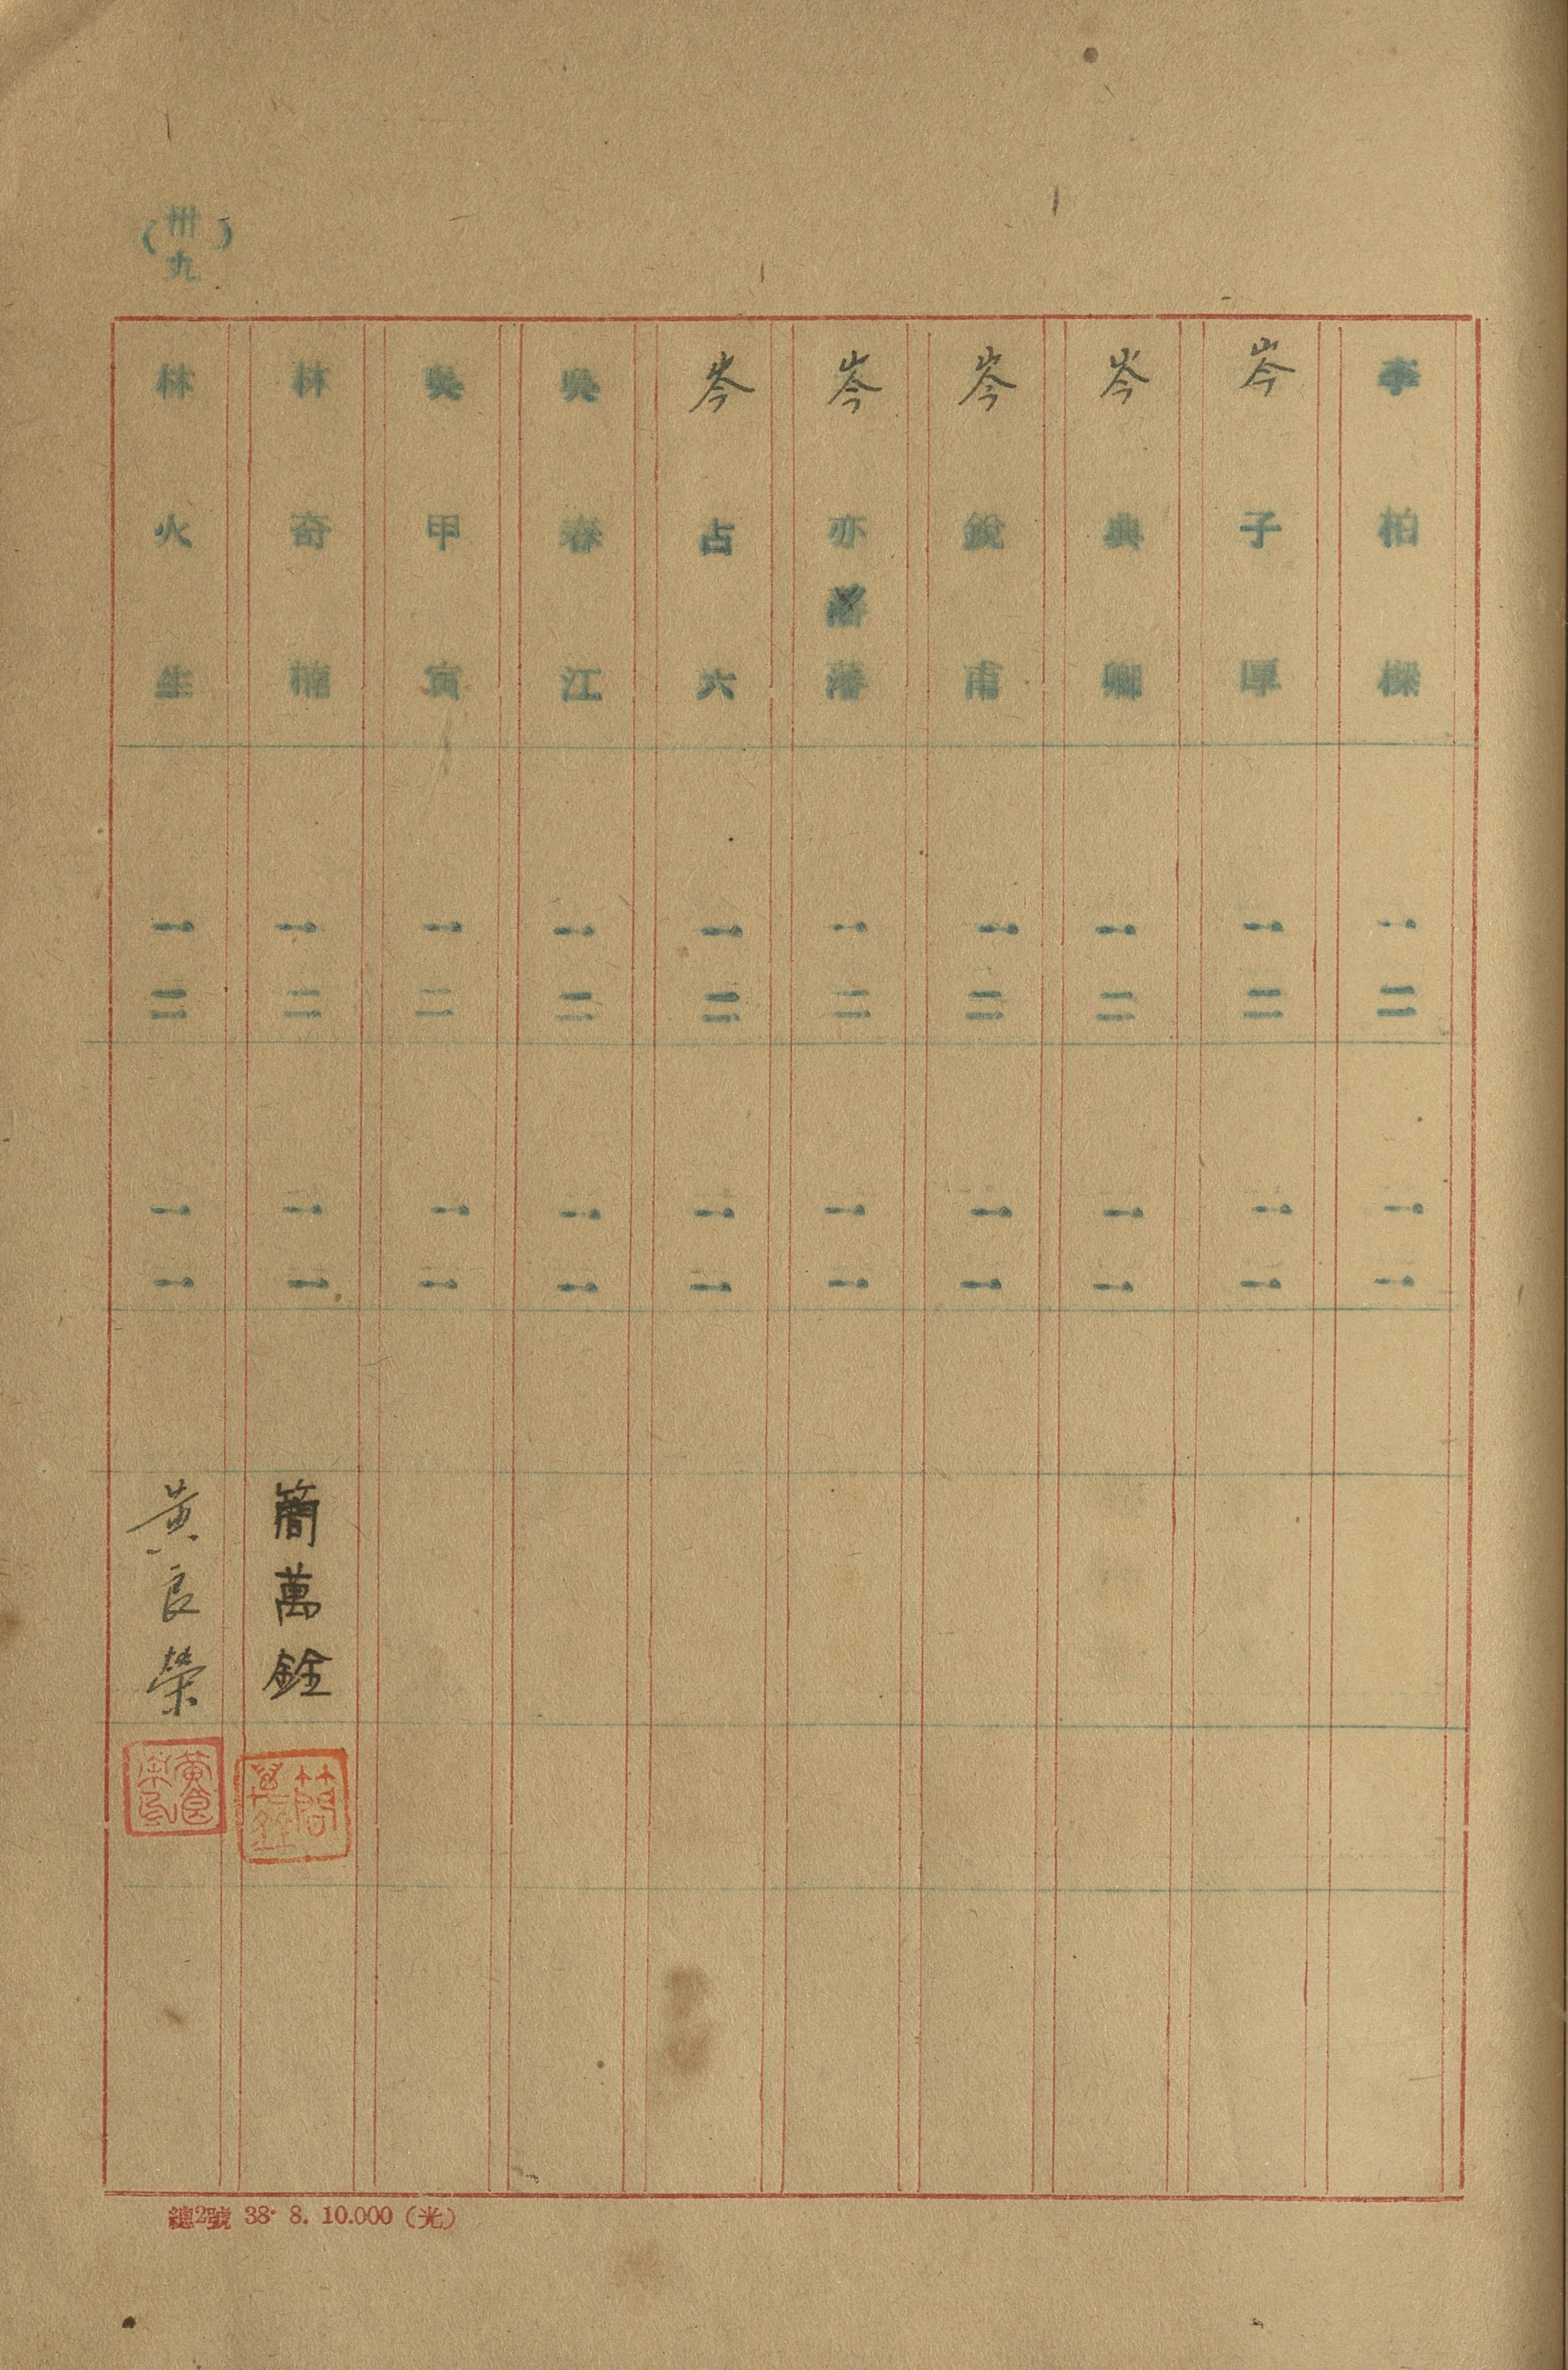 李柏樑 一二 一一
岑子厚 一二 一一
岑典卿 一二 一一
岑銳甫 一二 一一
岑亦藩 一二 一一
岑占六 一二 一一
吳春江 一二 一一
吳甲寅 一二 一一
林奇楠 一二 一一 簡萬銓 簡萬銓
林火生 一二 一一 黃良榮 黃良榮
（卅九）
總2號 38. 8. 10.000（光）